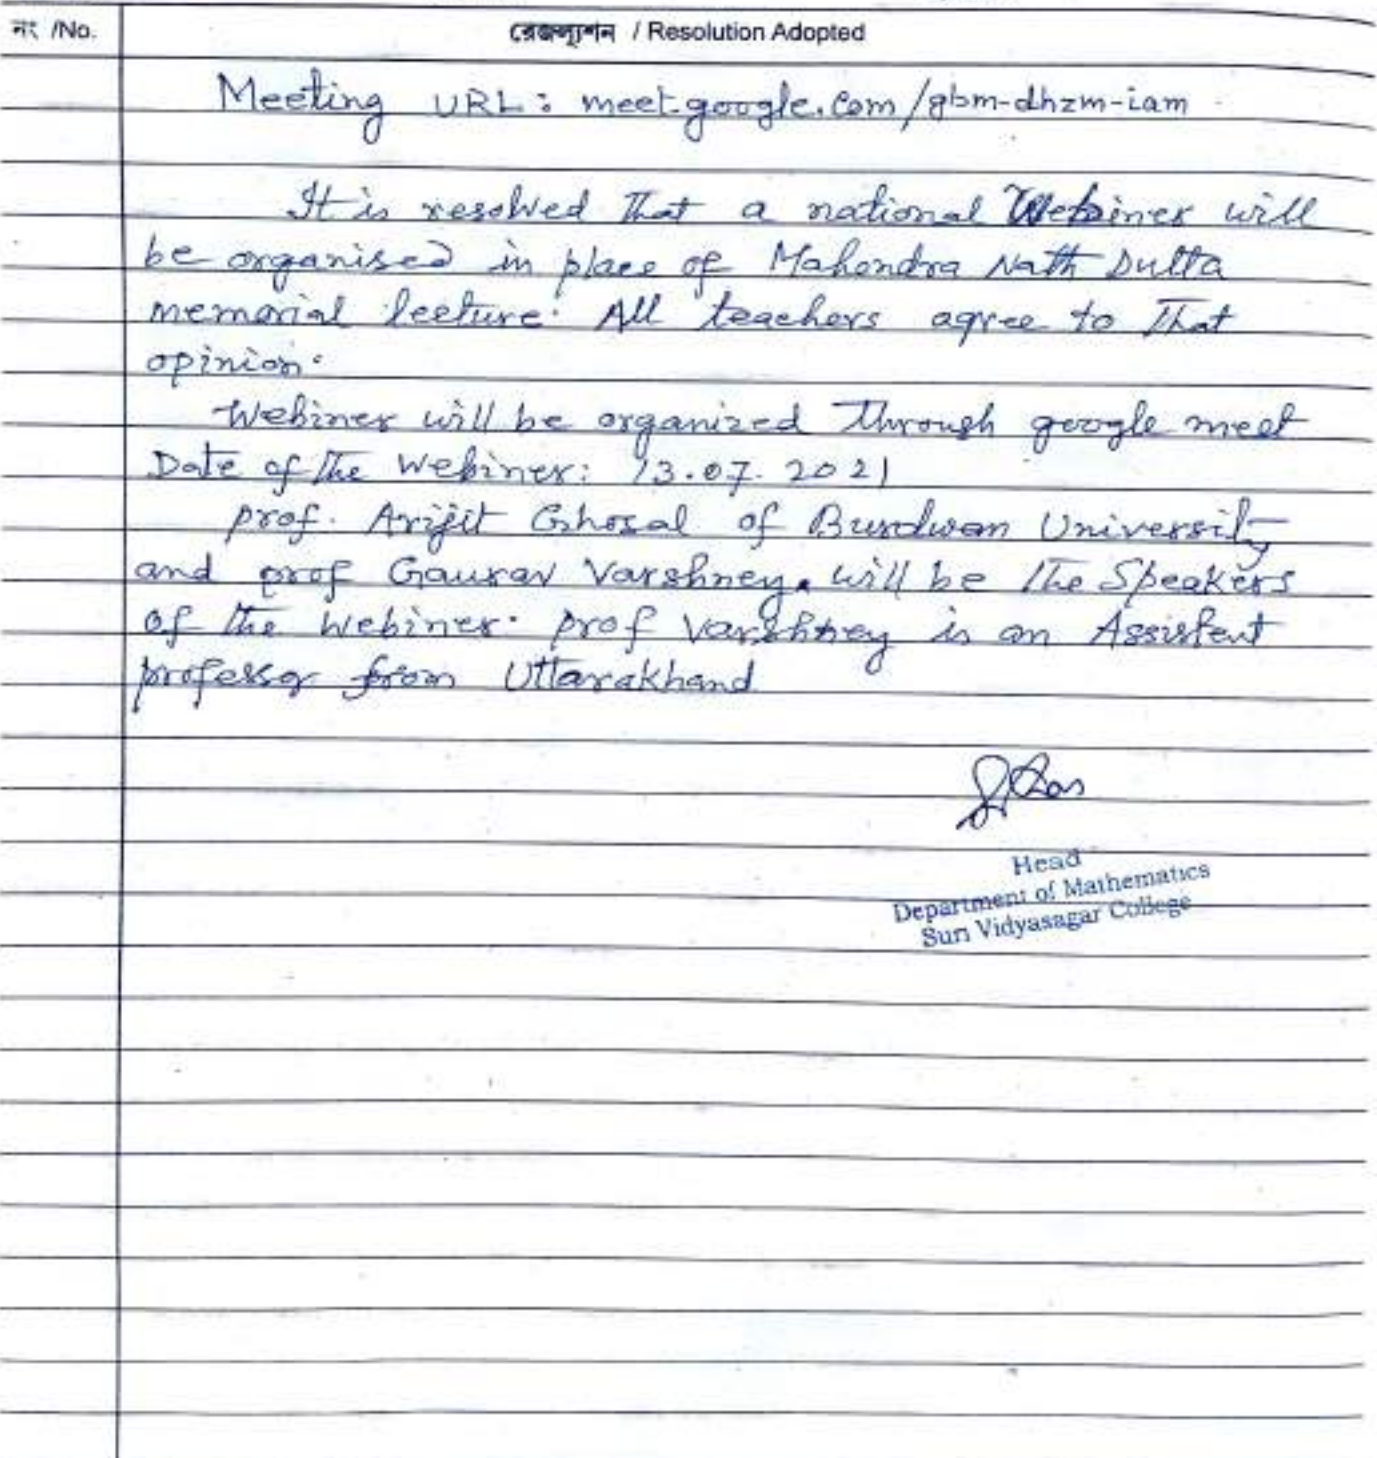 নং /No.
রেজল্যুশন / Resolution Adopted
Meeting URL: meet.google.com/gbm-dhzm-iam
It is resolved that a national Webiner will
be organised in place of Mahendra Nath Dutta
memorial lecture. All teachers agree to that
opinion.
Webiner will be organized through google meet
Date of the Webiner: 13.07.2021
prof. Arijit Ghosal of Burdwan University
and prof Gaurav Varshney will be the Speakers
of the Webiner. prof Varshney is an Assistent
professor from Uttarakhand
Head
Department of Mathematics
Suri Vidyasagar College